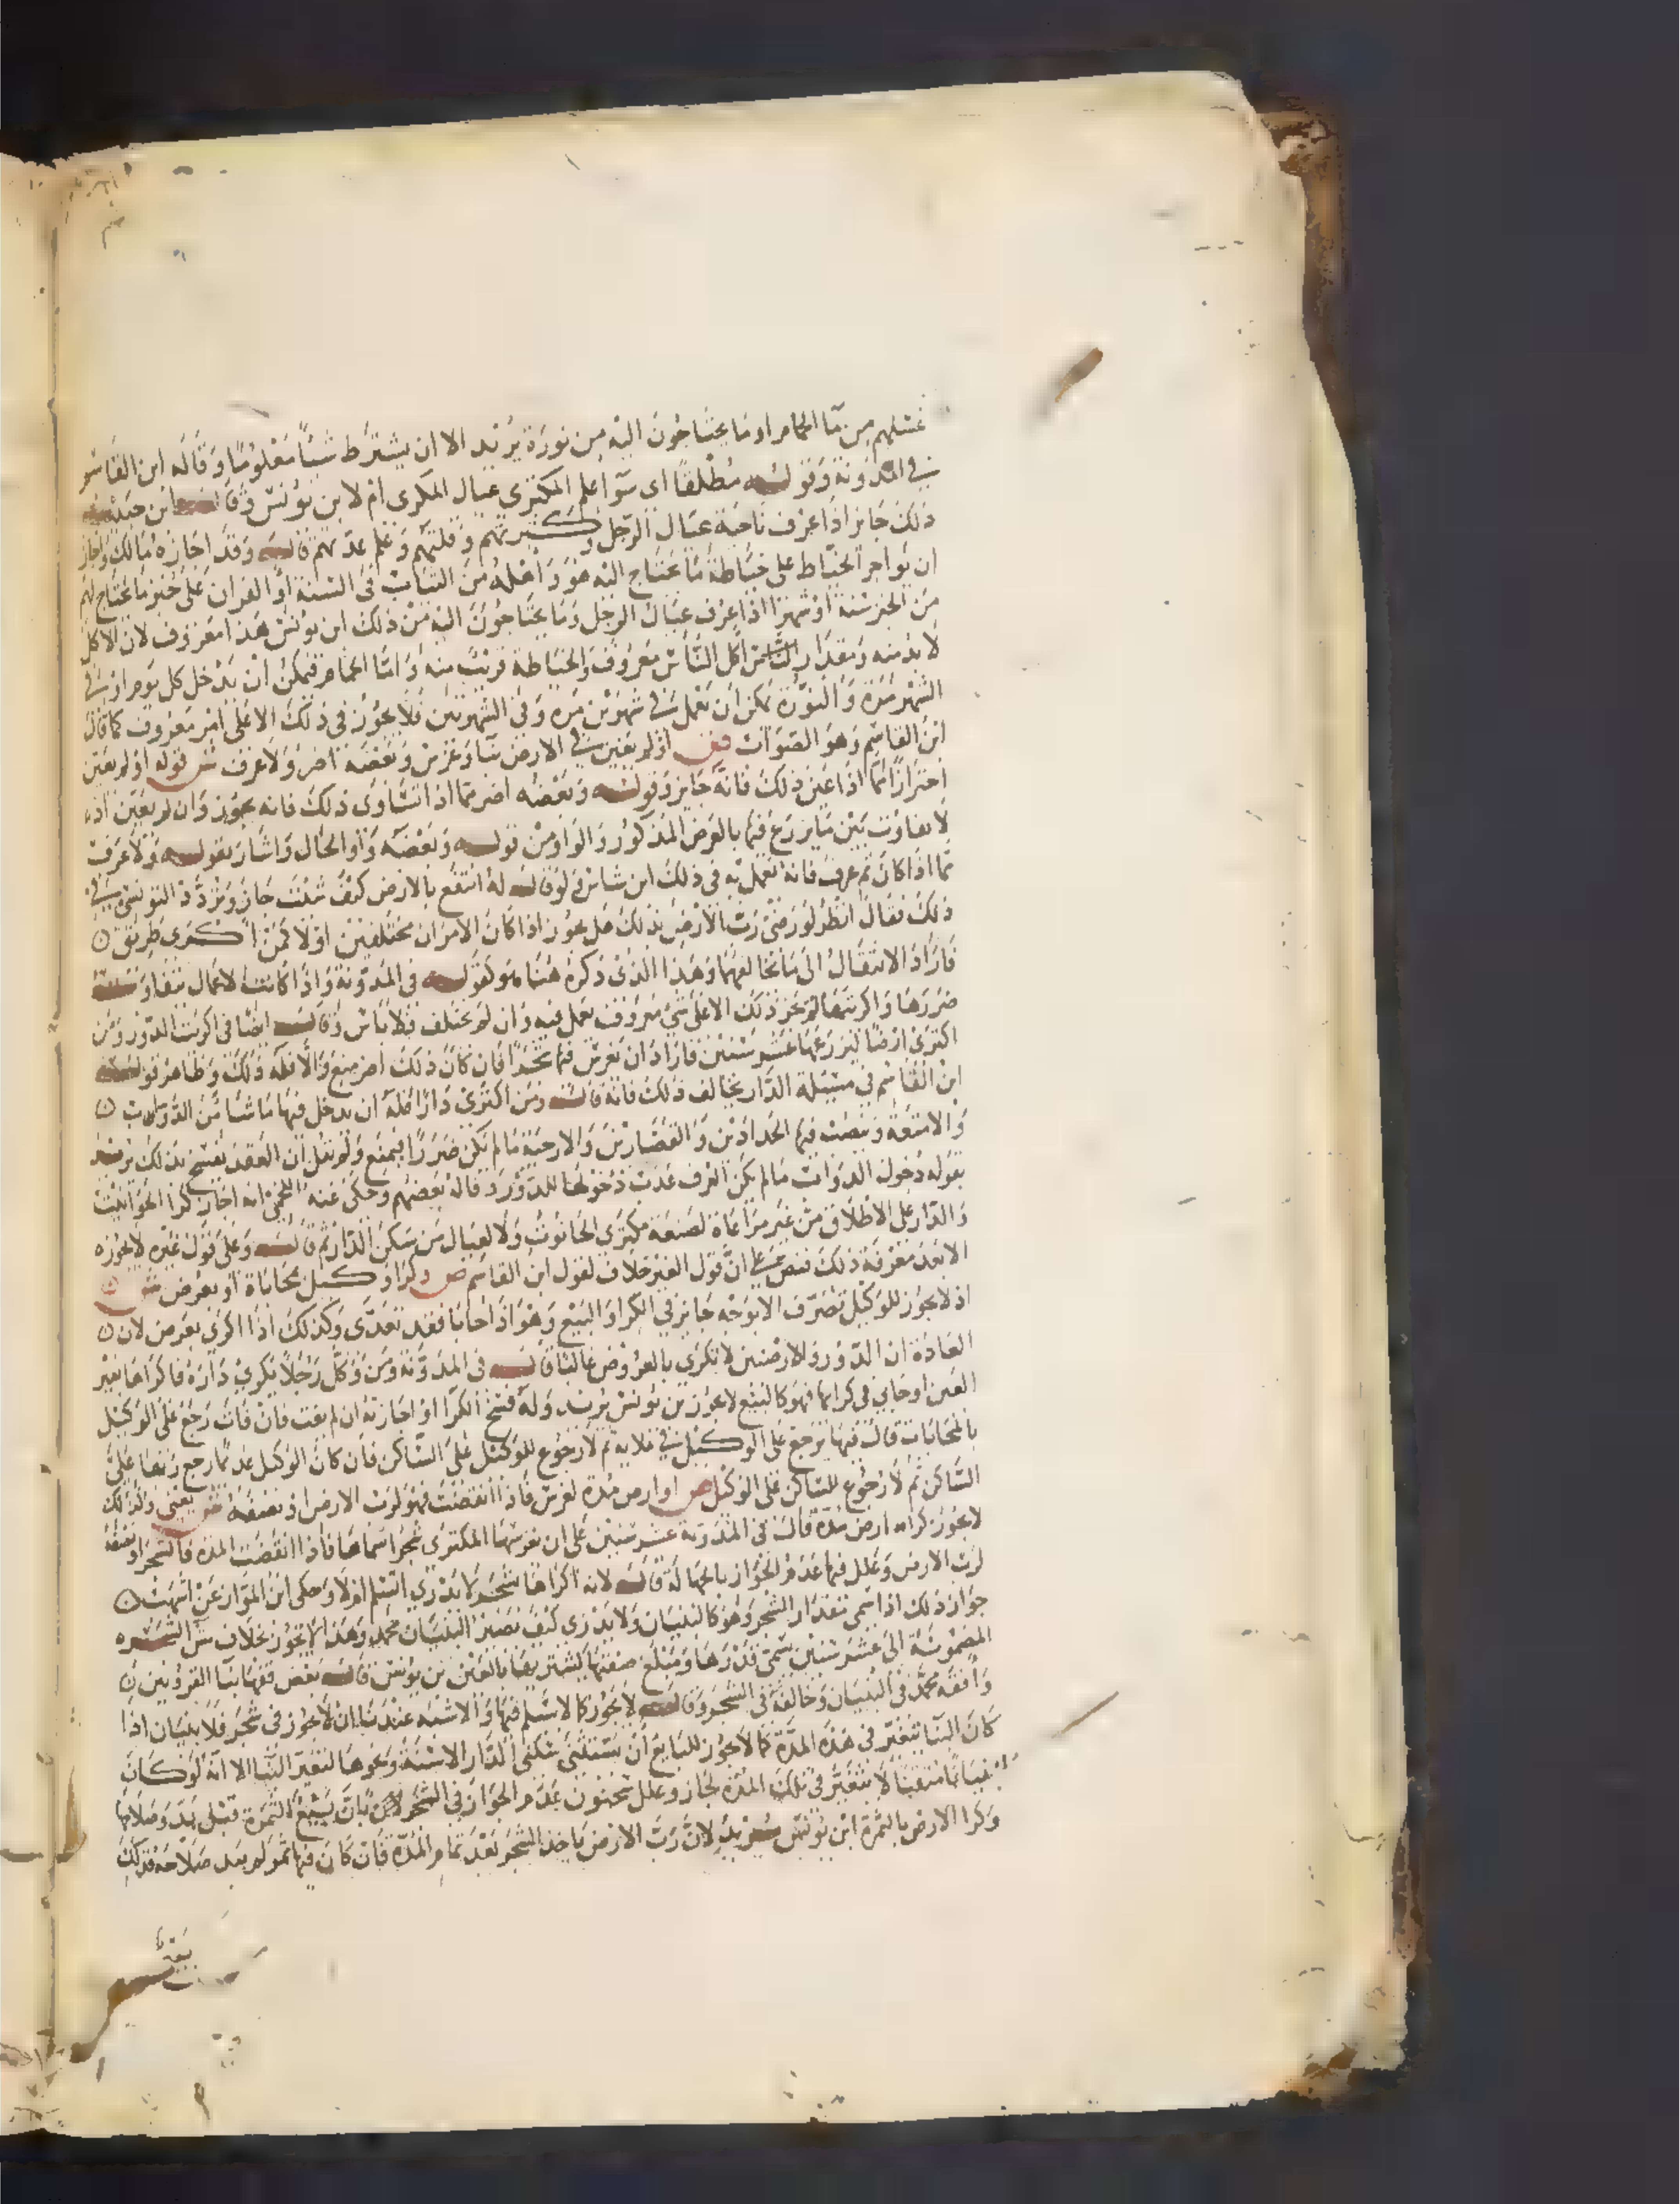 غسلهم من ماء الحمام او ما يحتاجون اليه من نورة يريد الا ان يشترط شيئا معلوما وقاله ابن القاسم
في المدونة وقوله مطلقا اى سوا علم المكترى عيال المكرى ام لا بن يونس وقال ابن حبيب
ذلك جايز اذا عرف ناحية عيال الرجل وكثرتهم وقلتهم وعلم عدتهم قال وقد اجازه مالك واجاز
ان يواجر الخياط على خياطة ما يحتاج اليه هو واهله من الثياب في السنة او الفران على خبز ما يحتاج لهم
من الخبز سنة او شهرا اذا عرف عيال الرجل وما يحتاجون اليه من ذلك ابن يونس هذا معروف لان الاكل
لا بد منه ومقدار اكل الناس معروف والخياطة قريب منه واما الحمام فيمكن ان يدخل كل يوم او في
الشهر مرة والنورة يمكن ان تعمل في شهرين مرة وفي الشهر مرتين فلا يجوز في ذلك الا على امر معروف كما قال
ابن القاسم وهو الصواب او لم يعين في الارض بنا وغرس وبعضه اضر ولا عرف ش قوله او لم يعين
احترازا مما اذا عين ذلك فانه جايز وقوله وبعضه اضر مما اذا تساوى ذلك فانه يجوز وان لم يعين اذ
لا تفاوت بين ما يزرع فيها بالغرض المذكور والواو من قوله وبعضه واو الحال واشار بقوله ولا عرف
مما اذا كان ثم عرف فانه يعمل به في ذلك ابن شاس فلو قال له انتفع بالارض كيف شئت جاز وتردد التونسي في
ذلك فقال انظر لو رضى رب الارض بذلك هل يجوز اذا كان الامران مختلفين او لا كمن اكترى طريق
فاراد الانتقال الى ما يخالفها وهذا الذي ذكره هنا هو لقوله في المدونة واذا كانت الاعمال يتفاوت
ضررها واكريتها لم يجز ذلك الا على شي معروف يعمل فيه وان لم يختلف فلا باس وقال ايضا في اكرية الدور ومن
اكترى ارضا ليزرعها عشر سنين فاراد ان يغرس فيها شجرا فان كان ذلك اضر منع والا فله ذلك وظاهر قول
ابن القاسم في مسيلة الدار يخالف ذلك فانه قال ومن اكترى دارا فله ان يدخل فيها ما شا من الدواب
والامتعة وينصب فيها الحدادين والقصارين والارحية ما لم يكن ضررا فيمنع ولم يقل ان العقد يفسخ بذلك يريد
بقوله دخول الدواب ما لم يكن العرف عدم دخولها للدور وقاله بعضهم وحكى عنه اللخمي انه اجاز كرا الحوانيت
والدار على الاطلاق من غير مراعاة لصنعة مكترى الحانوت ولا لعيال من سكن الدار ثم قال وعلى قول غيره لا يجوز
الا بعد معرفة ذلك فنص على ان قول الغير خلاف لقول ابن القاسم ص وكرا وكيل بمحاباة او بعرض ش
اذ لا يجوز للوكيل تصرف الا بوجه جايز في الكرا والبيع وهو اذا حابا فقد تعدى وكذلك اذا اكرى بعرض لان
العادة ان الدور والارضين لا تكرى بالعروض غالبا قال في المدونة ومن وكل رجلا يكري داره فاكراها بغير
العين او حابي في كرايها فهو كالبيع لا يجوز بن يونس يريد وله فسخ الكرا او اجازته ان لم يفت فان فات رجع على الوكيل
بالمحابات قال فيها يرجع على الوكيل في ملايه ثم لا رجوع للوكيل على الساكن فان كان الوكيل عديما رجع ربها على
الساكن ثم لا رجوع للساكن على الوكيل ص او ارض مدة لغرس فاذا انقضت فهو لرب الارض او نصفه ش يعني وكذلك
لا يجوز كراء ارض مدة قال في المدونة عشر سنين على ان يغرسها المكترى شجرا سماها فاذا انقضت المدة فالشجر او نصفه
لرب الارض وعلل فيها عدم الجواز بالجهالة قال لانه اكراها بشجر لا يدرى ايسلم ام لا وحكى ابن المواز عن اشهب
جواز ذلك اذا سمى مقدار الشجر وهو كالبنيان ولا يدرى كيف يصير البنيان محمد وهذا لا يجوز بخلاف شرا الشجرة
المضمونة الى عشر سنين يسمى قدرها ومبلغ صفتها يشتريها بالعين بن يونس قال بعض فقهاينا القرويين
وافقه محمد في البنيان وخالفه في الشجر وقال لا يجوز كما لا يسلم فيها والاشبه عندنا ان لا يجوز في شجر فلا بنيان اذا
كان البنا يتغير في هذه المدة كما لا يجوز للبايع ان يستثنى سكنى الدار الا سنة ونحوها لتغير البنا الا انه لو كان
بنيانا متقنا لا يتغير في تلك المدة لجاز وعلل سحنون عدم الجواز في الشجر بان بيع الثمرة قبل بدو صلاحها
وكرا الارض بالثمرة ابن يونس يريد لان رب الارض ياخذ الشجر بعد تمام المدة فان كان فيها ثمر لم يبد صلاحه فذلك
بيع